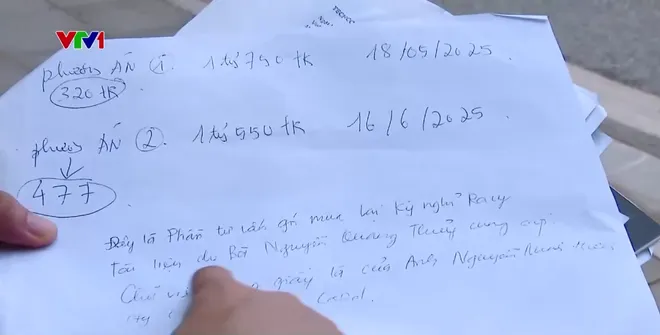 VTV1
phương ÁN 1. 1 tỷ 750 tk 18/05/2025.
320tk
phương ÁN 2 1 tỷ 550 tk 16/6/2025
477
Đây là Phần tư vấn gói mua lại Kỳ nghỉ
Tài liệu do Bà Nguyễn Quang Thủy cung cấp.
Chữ giấy là của Anh Nguyễn